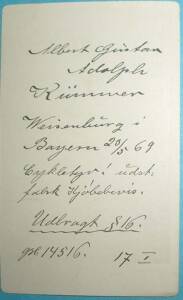 Albert Gustav
Adolph
Kümmer
Weisenburg i
Bayern 20/5 69
Cykletyv! udst.
fabrk Kjöbehvis.
Udbragt § 16.
gsk 14516. 17 I